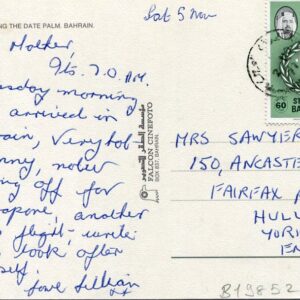 NG THE DATE PALM. BAHRAIN.
Sat 5 Nov
Mother,
Its 7.0 A.M.
sday morning
arrived in
rain, Very hot
nny,
ing off for
apore, another
flight - write
look after
self,
love Gillian
FALCON CINEFOTO
BOX 837, BAHRAIN.
60
ST
BA
MRS SAWYER
150, ANCASTE
FAIRFAX A
HULL
YOR
E
B19852